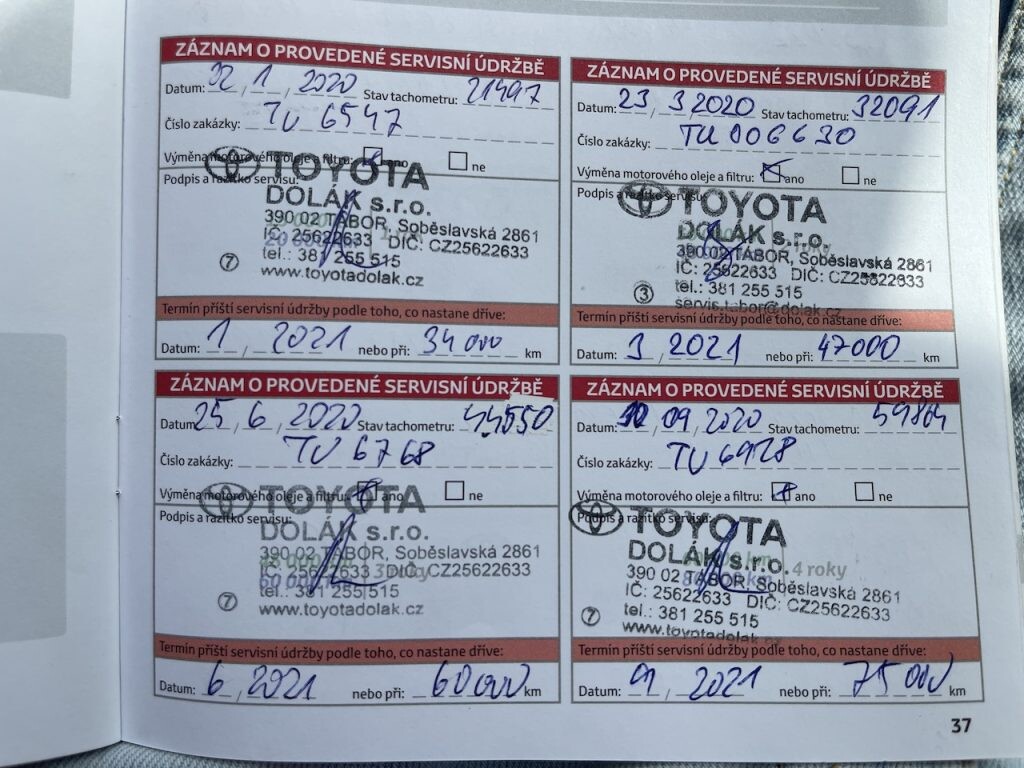 ZÁZNAM O PROVEDENÉ SERVISNÍ ÚDRŽBĚ
Datum: 1 2020 Stav tachometru: 21497
Číslo zakázky: TU 6547
Výměna motorového oleje a filtru: ano ne
Podpis a razítko servisu:
TOYOTA
DOLÁK s.r.o.
390 02 TÁBOR, Soběslavská 2861
IČ: 25622633 DIČ: CZ25622633
tel.: 381 255 515
7 www.toyotadolak.cz
Termín příští servisní údržby podle toho, co nastane dříve:
Datum: 1 2021 nebo při: 34 000 km
ZÁZNAM O PROVEDENÉ SERVISNÍ ÚDRŽBĚ
Datum: 23 3 2020 Stav tachometru: 32091
Číslo zakázky: TU 006630
Výměna motorového oleje a filtru: ano ne
Podpis a razítko servisu:
TOYOTA
DOLÁK s.r.o.
390 02 TÁBOR, Soběslavská 2861
IČ: 25622633 DIČ: CZ25622633
3 tel.: 381 255 515
servis.tabor@dolak.cz
Termín příští servisní údržby podle toho, co nastane dříve:
Datum: 3 2021 nebo při: 47000 km
ZÁZNAM O PROVEDENÉ SERVISNÍ ÚDRŽBĚ
Datum: 25 6 2020 Stav tachometru: 44550
Číslo zakázky: TU 6768
Výměna motorového oleje a filtru: ano ne
Podpis a razítko servisu:
TOYOTA
DOLÁK s.r.o.
390 02 TÁBOR, Soběslavská 2861
IČ: 25622633 DIČ: CZ25622633
3 roky
60 000
tel.: 381 255 515
7 www.toyotadolak.cz
Termín příští servisní údržby podle toho, co nastane dříve:
Datum: 6 2021 nebo při: 60 000 km
ZÁZNAM O PROVEDENÉ SERVISNÍ ÚDRŽBĚ
Datum: 10 09 2020 Stav tachometru: 59864
Číslo zakázky: TU 6928
Výměna motorového oleje a filtru: ano ne
Podpis a razítko servisu:
TOYOTA
DOLÁK s.r.o.
4 roky
390 02 TÁBOR, Soběslavská 2861
IČ: 25622633 DIČ: CZ25622633
7 tel.: 381 255 515
www.toyotadolak.cz
Termín příští servisní údržby podle toho, co nastane dříve:
Datum: 09 2021 nebo při: 75 000 km
37